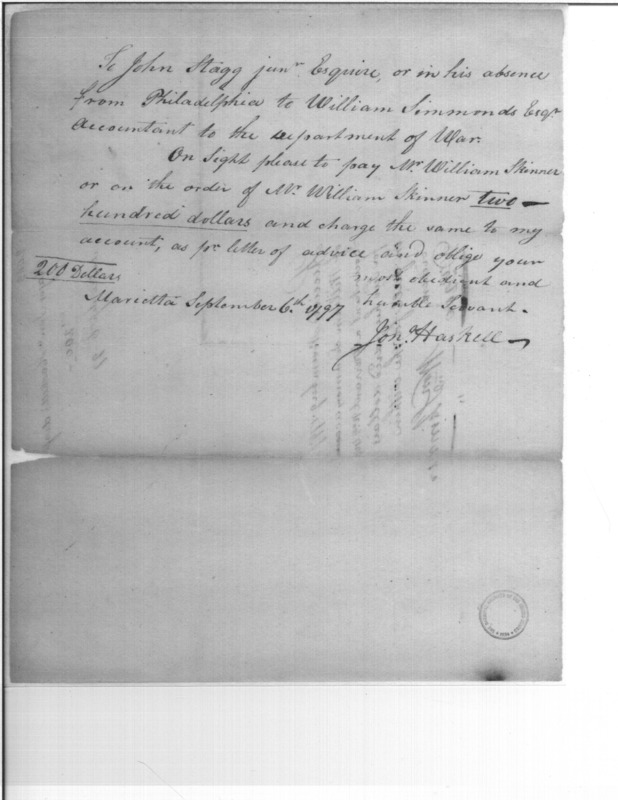 To John Stagg junr. Esquire, or in his absence
from Philadelphia to William Simmonds Esqr.
Accountant to the department of War.
On Sight please to pay Mr. William Skinner
or on the order of Mr. William Skinner two
hundred dollars and charge the same to my
account, as pr. letter of advice and oblige your
200 Dollars most obedient and
Marietta September 6.th 1797 humble Servant.
Jon.a Haskell